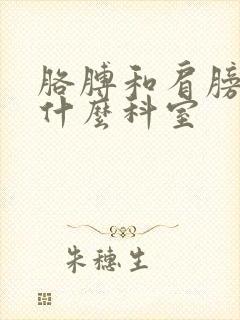 胳膊和肩膀
什麼科室
朱穗生